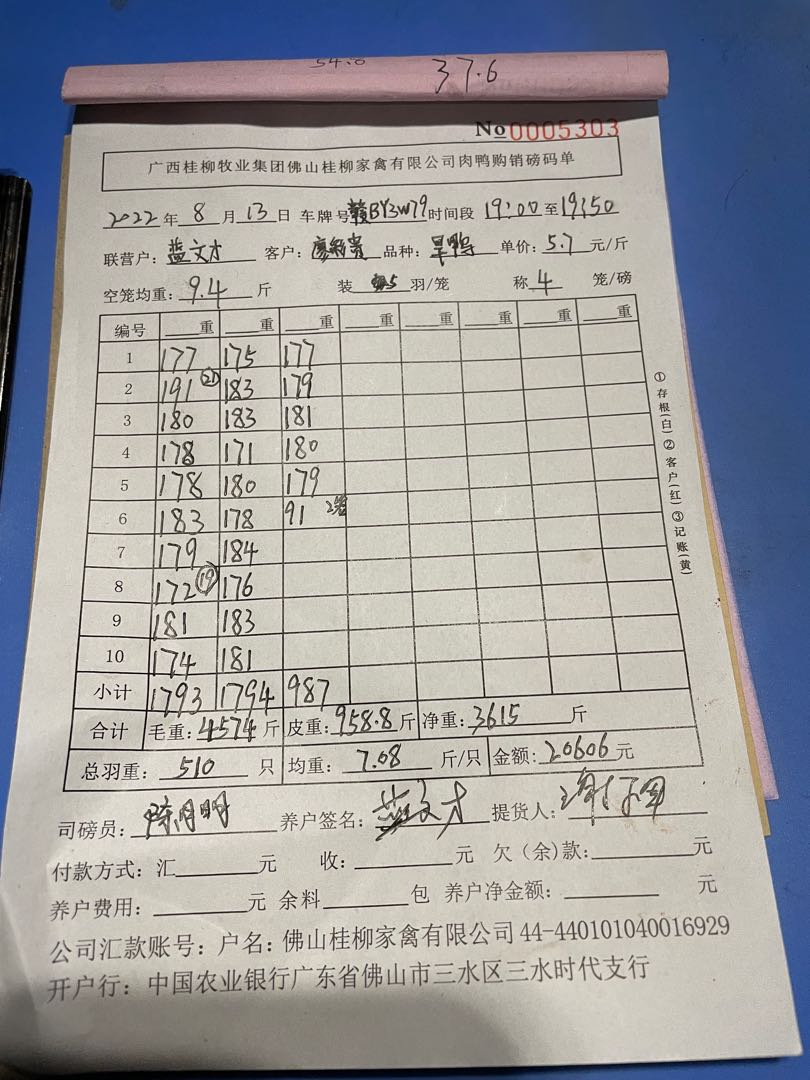 37.6
No 0005303
广西桂柳牧业集团佛山桂柳家禽有限公司肉鸭购销磅码单
2022年 8 月 13 日 车牌号 赣BY3W79 时间段 19:00 至 19:50
联营户: 蓝文才 客户: 品种: 旱鸭 单价: 5.7 元/斤
空笼均重: 9.4 斤 装 5 羽/笼 称 4 笼/磅
编号 重 重 重 重 重 重 重 重
1 177 175 177
2 191 (21) 183 179
3 180 183 181
4 178 171 180
5 178 180 179
6 183 178 91 2笼
7 179 184
8 172 (19) 176
9 181 183
10 174 181
小计 1793 1794 987
合计 毛重: 4574 斤 皮重: 958.8 斤 净重: 3615 斤
总羽重: 510 只 均重: 7.08 斤/只 金额: 20606 元
司磅员: 陈月明 养户签名: 蓝文才 提货人:
付款方式: 汇 元 收: 元 欠(余)款: 元
养户费用: 元 余料 包 养户净金额: 元
公司汇款账号: 户名: 佛山桂柳家禽有限公司 44-440101040016929
开户行: 中国农业银行广东省佛山市三水区三水时代支行
①存根(白)②客户(红)③记账(黄)